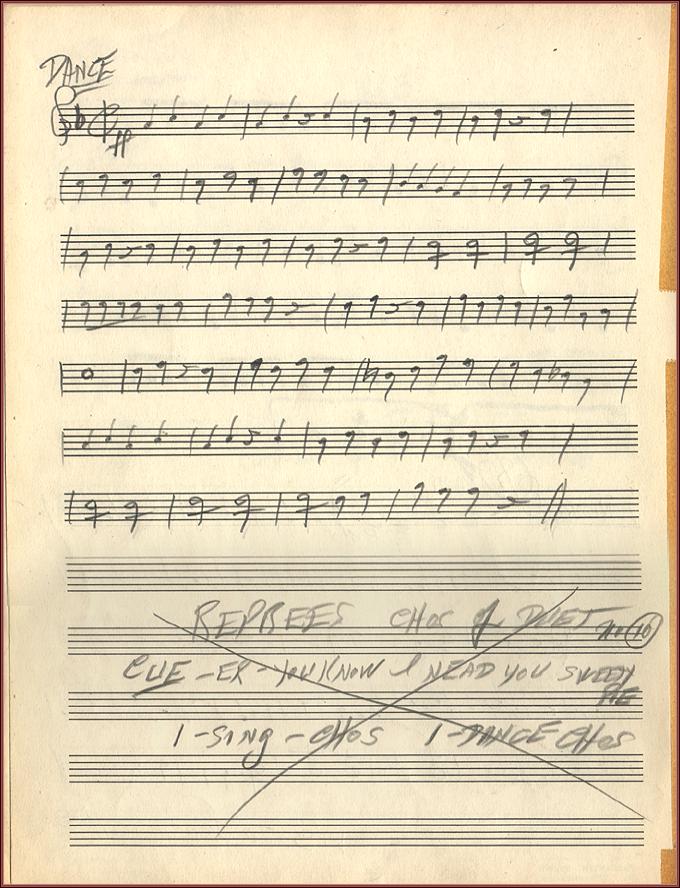 DANCE
ff
REPREES CHOS of DUET No 16
CUE - EX - YOU KNOW I NEAD YOU SWEETY
PIE
1 - SING - CHOS 1 - DANCE CHOS